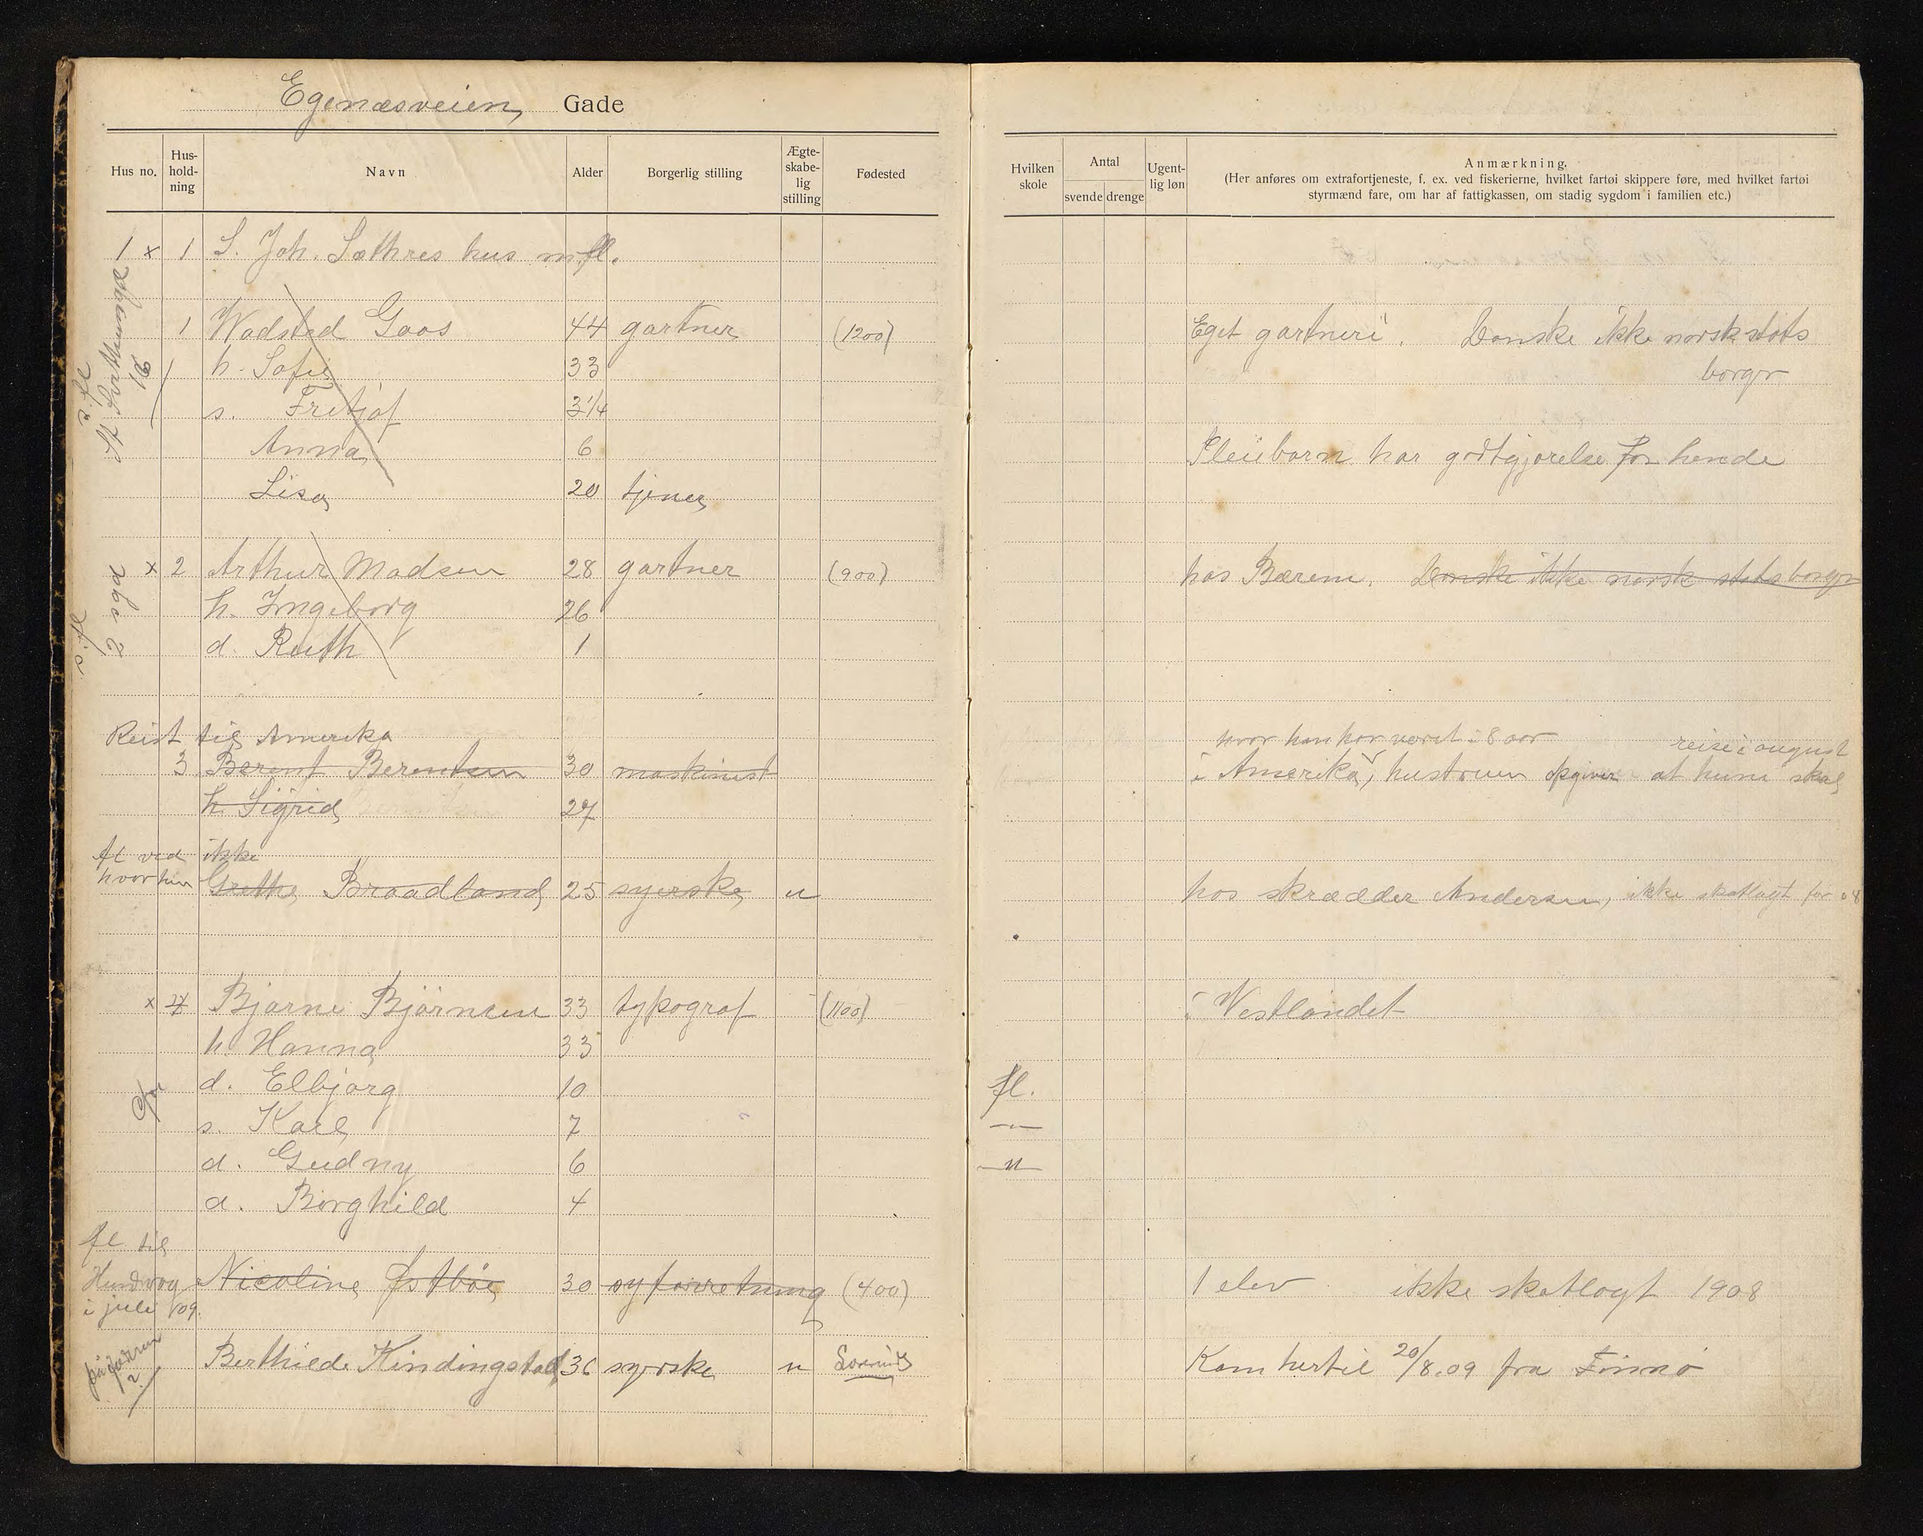 Egenæsveien, Gade
Hus no. Hus-hold-ning Navn Alder Borgerlig stilling Ægte-skabe-lig stilling Fødested
Hvilken skole Antal svende drenge Ugent-lig løn Anmærkning.
(Her anføres om extrafortjeneste, f. ex. ved fiskerierne, hvilket fartøi skippere føre, med hvilket fartøi
styrmænd fare, om har af fattigkassen, om stadig sygdom i familien etc.)
1 x 1 S. Joh. Sæthres hus m. fl.
1 Wadsted Goos 44 gartner (1200) Eget gartneri. Danske ikke norsk stats
borger
h. Sofie 33
s. Fretjof 3 1/4
Anna 6 Pleiebarn har godtgjørelse for hende
Lisa 20 tjener
x 2 Arthur Madsen 28 gartner (900) hos Bærem. Danske ikke norsk statsborger
h. Ingeborg 26
d. Ruth 1
Reist til Amerika
hvor han har været i 8 aar reise i august
3 Berent Berentsen 30 maskinist i Amerika, hustruen opgiver at hun skal
h. Sigrid 27
fl ved ikke
hvorhen Grethe Braadland 25 syerske u hos skrædder Andersen, ikke skatlagt for 08
x Bjarne Bjørnsen 33 typograf (1100) i Vestlandet
h. Hanna 33
d. Elbjørg 10 fl.
s. Karl 7 — " —
d. Gudny 6 — " —
d. Borghild 4
fl til
Hundvåg Nicoline Østbøe 30 syforretning (400) 1 elev ikke skatlagt 1908
i juli 09.
Berthilde Kindingstad 36 syerske u Kom hertil 20/8.09 fra Finnø